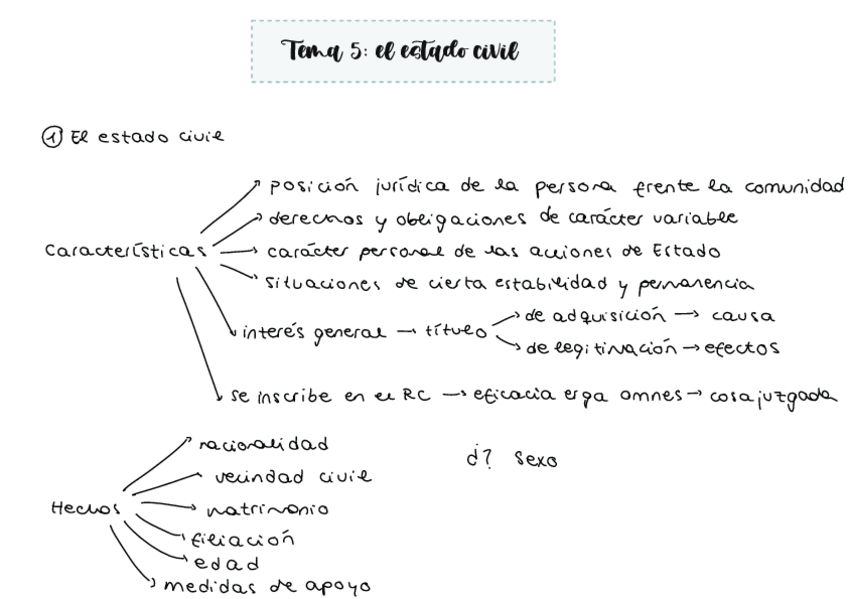 Tema 5: el estado civil
① El estado civil
posición jurídica de la persona frente la comunidad
derechos y obligaciones de carácter variable
Características
carácter personal de las acciones de Estado
situaciones de cierta estabilidad y permanencia
interés general → título
de adquisición → causa
de legitimación → efectos
se inscribe en el RC → eficacia erga omnes → cosa juzgada
nacionalidad
¿? sexo
vecindad civil
Hechos
matrimonio
filiación
edad
medidas de apoyo